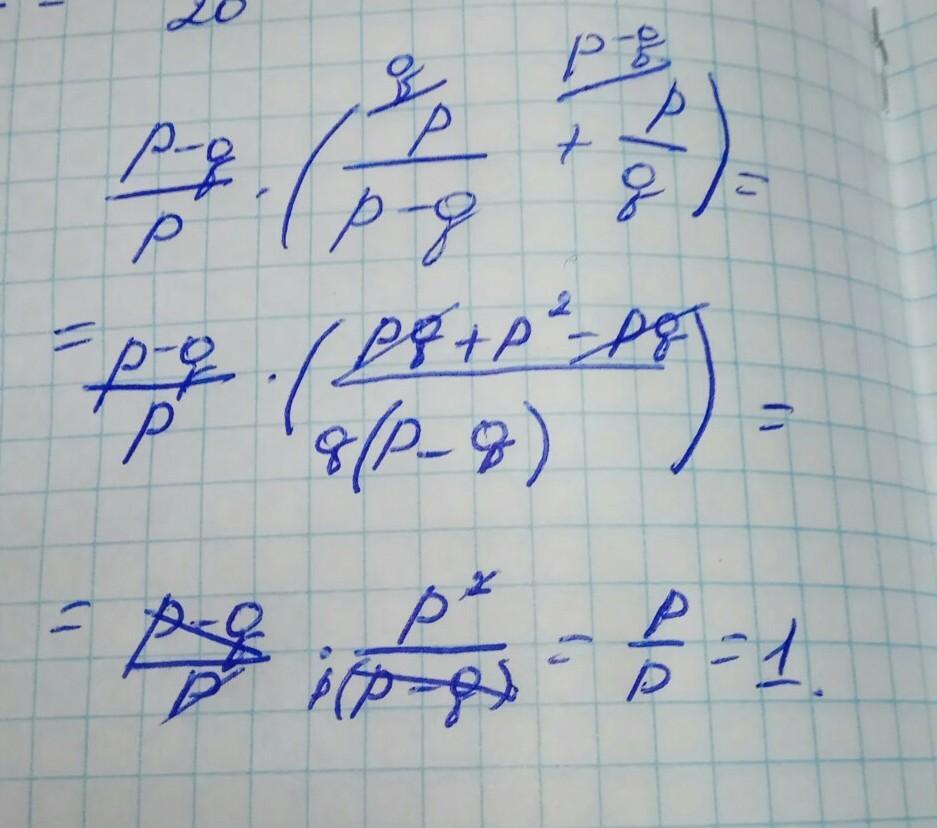 20
q/ p-q/
(p-q)/p · (p/(p-q) + p/q) =
= (p-q)/p · ((pq+p²-pq)/(q(p-q))) =
= (p-q)/p · p²/(p(p-q)) = p/p = 1.